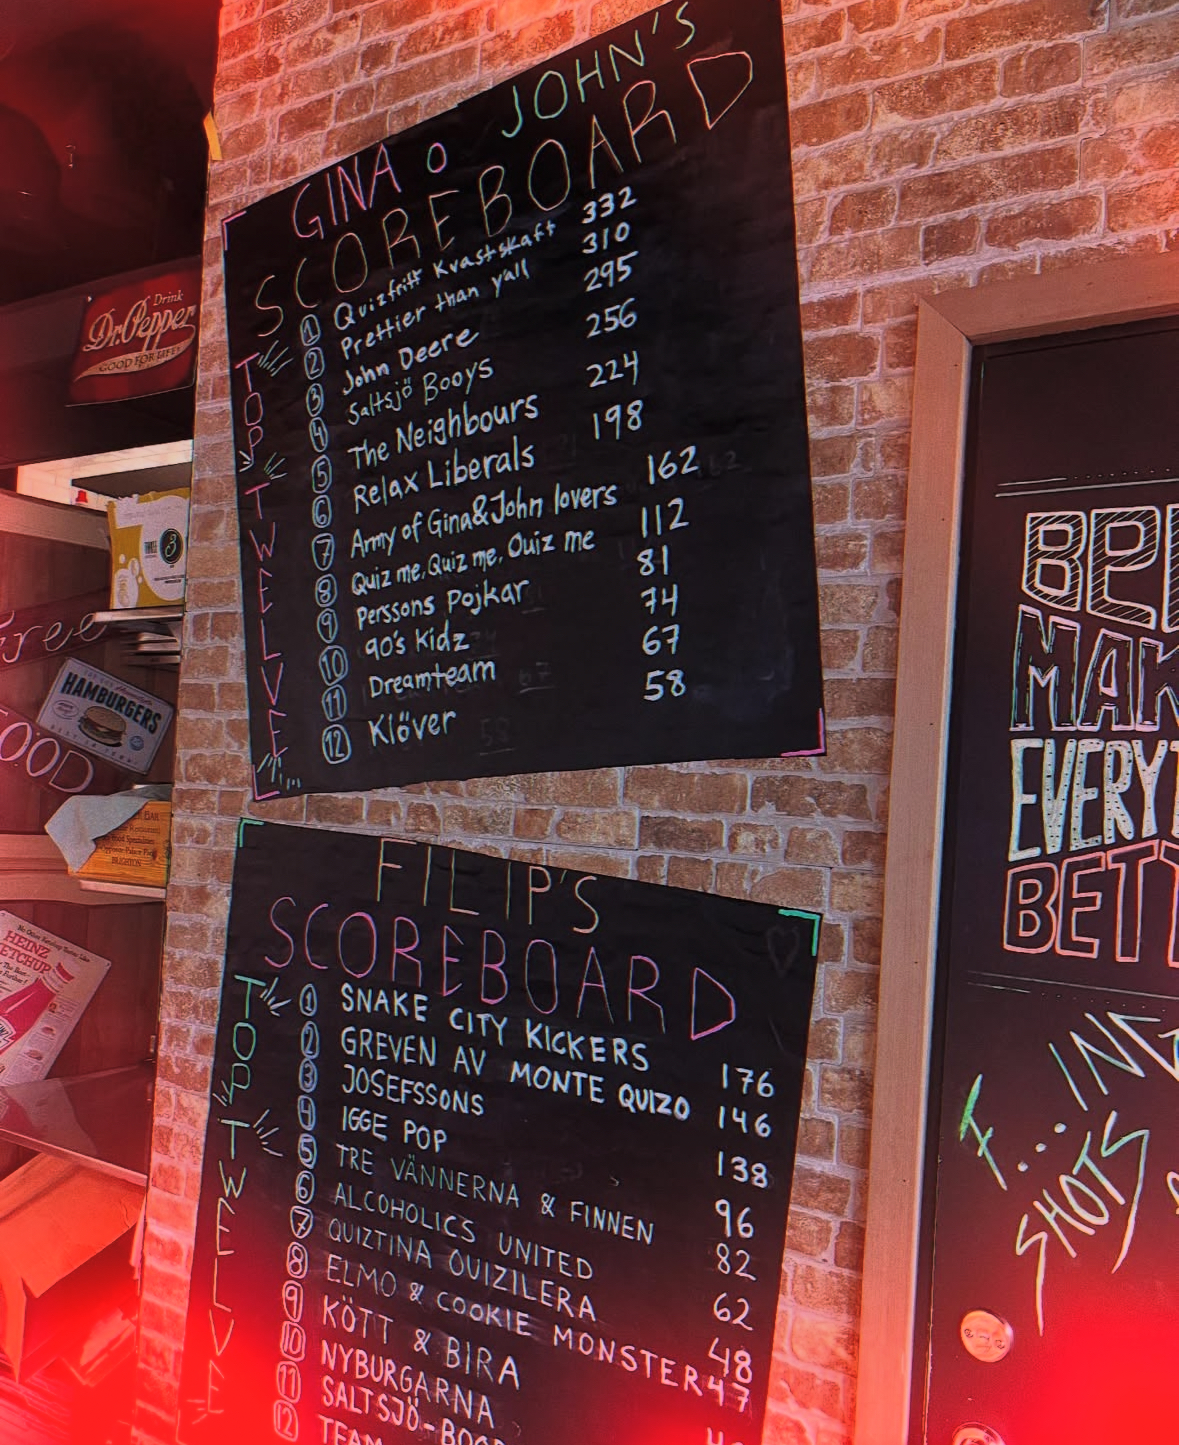 GINA o JOHN'S
SCOREBOARD
TOP TWELVE
1 Quizfritt Kvastskaft 332
2 Prettier than y'all 310
3 John Deere 295
4 Saltsjö Booys 256
5 The Neighbours 224
6 Relax Liberals 198
7 Army of Gina&John lovers 162
8 Quiz me, Quiz me, Quiz me 112
9 Perssons Pojkar 81
10 90's Kidz 74
11 Dreamteam 67
12 Klöver 58
FILIP'S
SCOREBOARD
TOP TWELVE
1 SNAKE CITY KICKERS 176
2 GREVEN AV MONTE QUIZO 146
3 JOSEFSSONS 138
4 IGGE POP 96
5 TRE VÄNNERNA & FINNEN 82
6 ALCOHOLICS UNITED 62
7 QUIZTINA QUIZILERA 48
8 ELMO & COOKIE MONSTER 47
9 KÖTT & BIRA
10 NYBURGARNA
11 SALTSJÖ-
12 TEAM
Drink
Dr Pepper
GOOD FOR LIFE!
3
Free
HAMBURGERS
FOOD
BAR
HEINZ
KETCHUP
MAK
EVERYT
BETT
SHOTS